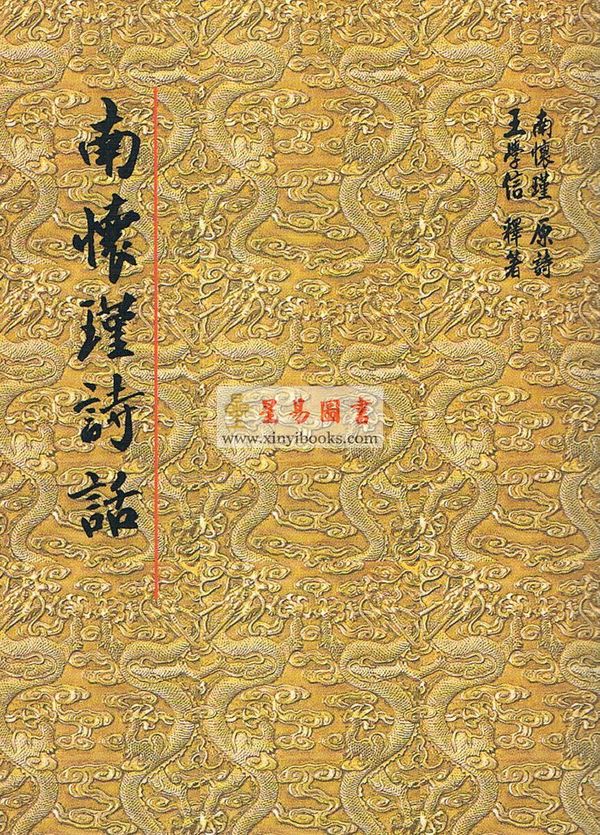 南懷瑾 原詩
王學信 釋著
南懷瑾詩話
星易圖書
www.xinyibooks.com